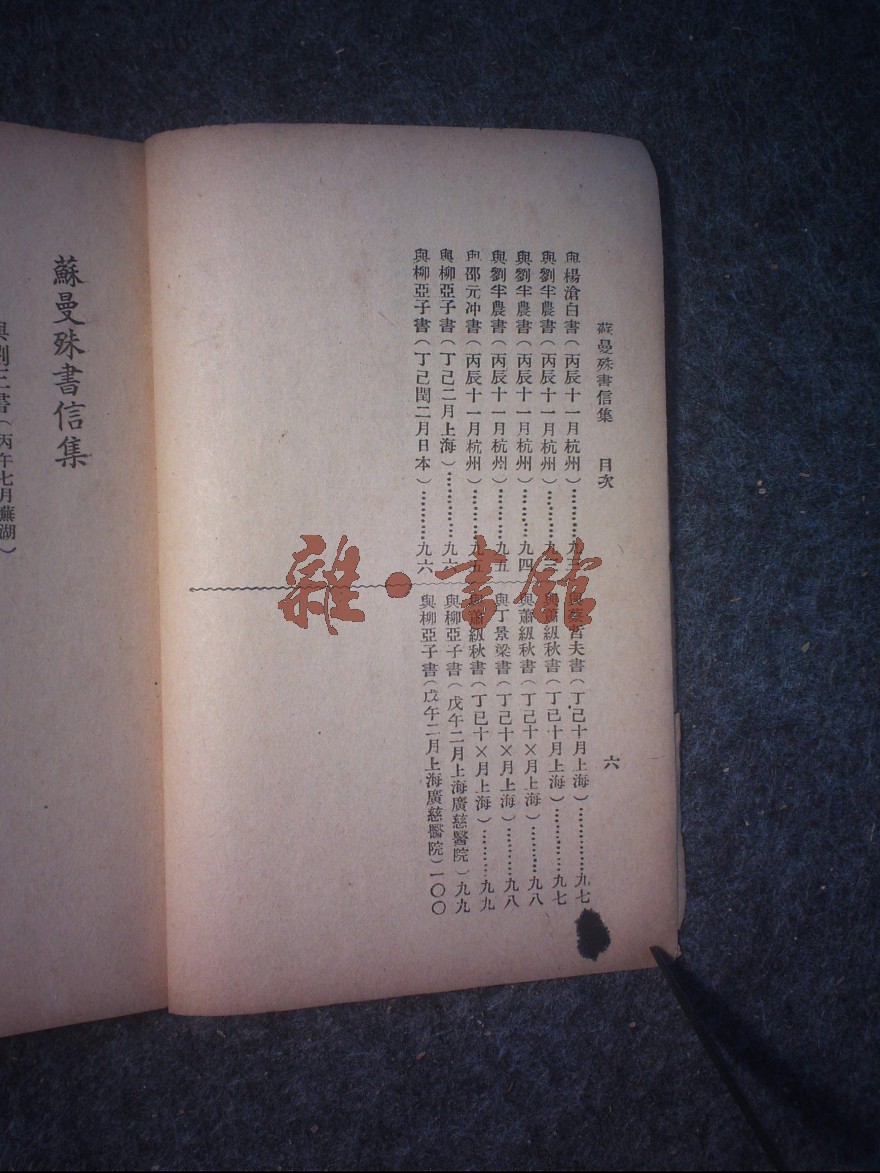 蘇曼殊書信集　目次　六
與楊滄白書(丙辰十一月杭州)…………九三
與劉半農書(丙辰十一月杭州)…………九三
與劉半農書(丙辰十一月杭州)…………九四
與劉半農書(丙辰十一月杭州)…………九五
與邵元冲書(丙辰十一月杭州)…………九五
與柳亞子書(丁己二月上海)…………九六
與柳亞子書(丁己閏二月日本)…………九六
與蔡哲夫書(丁己十月上海)…………九七
與蕭紉秋書(丁己十月上海)…………九七
與蕭紉秋書(丁己十×月上海)…………九八
與丁景梁書(丁己十×月上海)…………九八
與蕭紉秋書(丁己十×月上海)…………九九
與柳亞子書(戊午二月上海廣慈醫院)九九
與柳亞子書(戊午二月上海廣慈醫院)一〇〇
蘇曼殊書信集
與劉三書(丙午七月蕪湖)
雜·書館